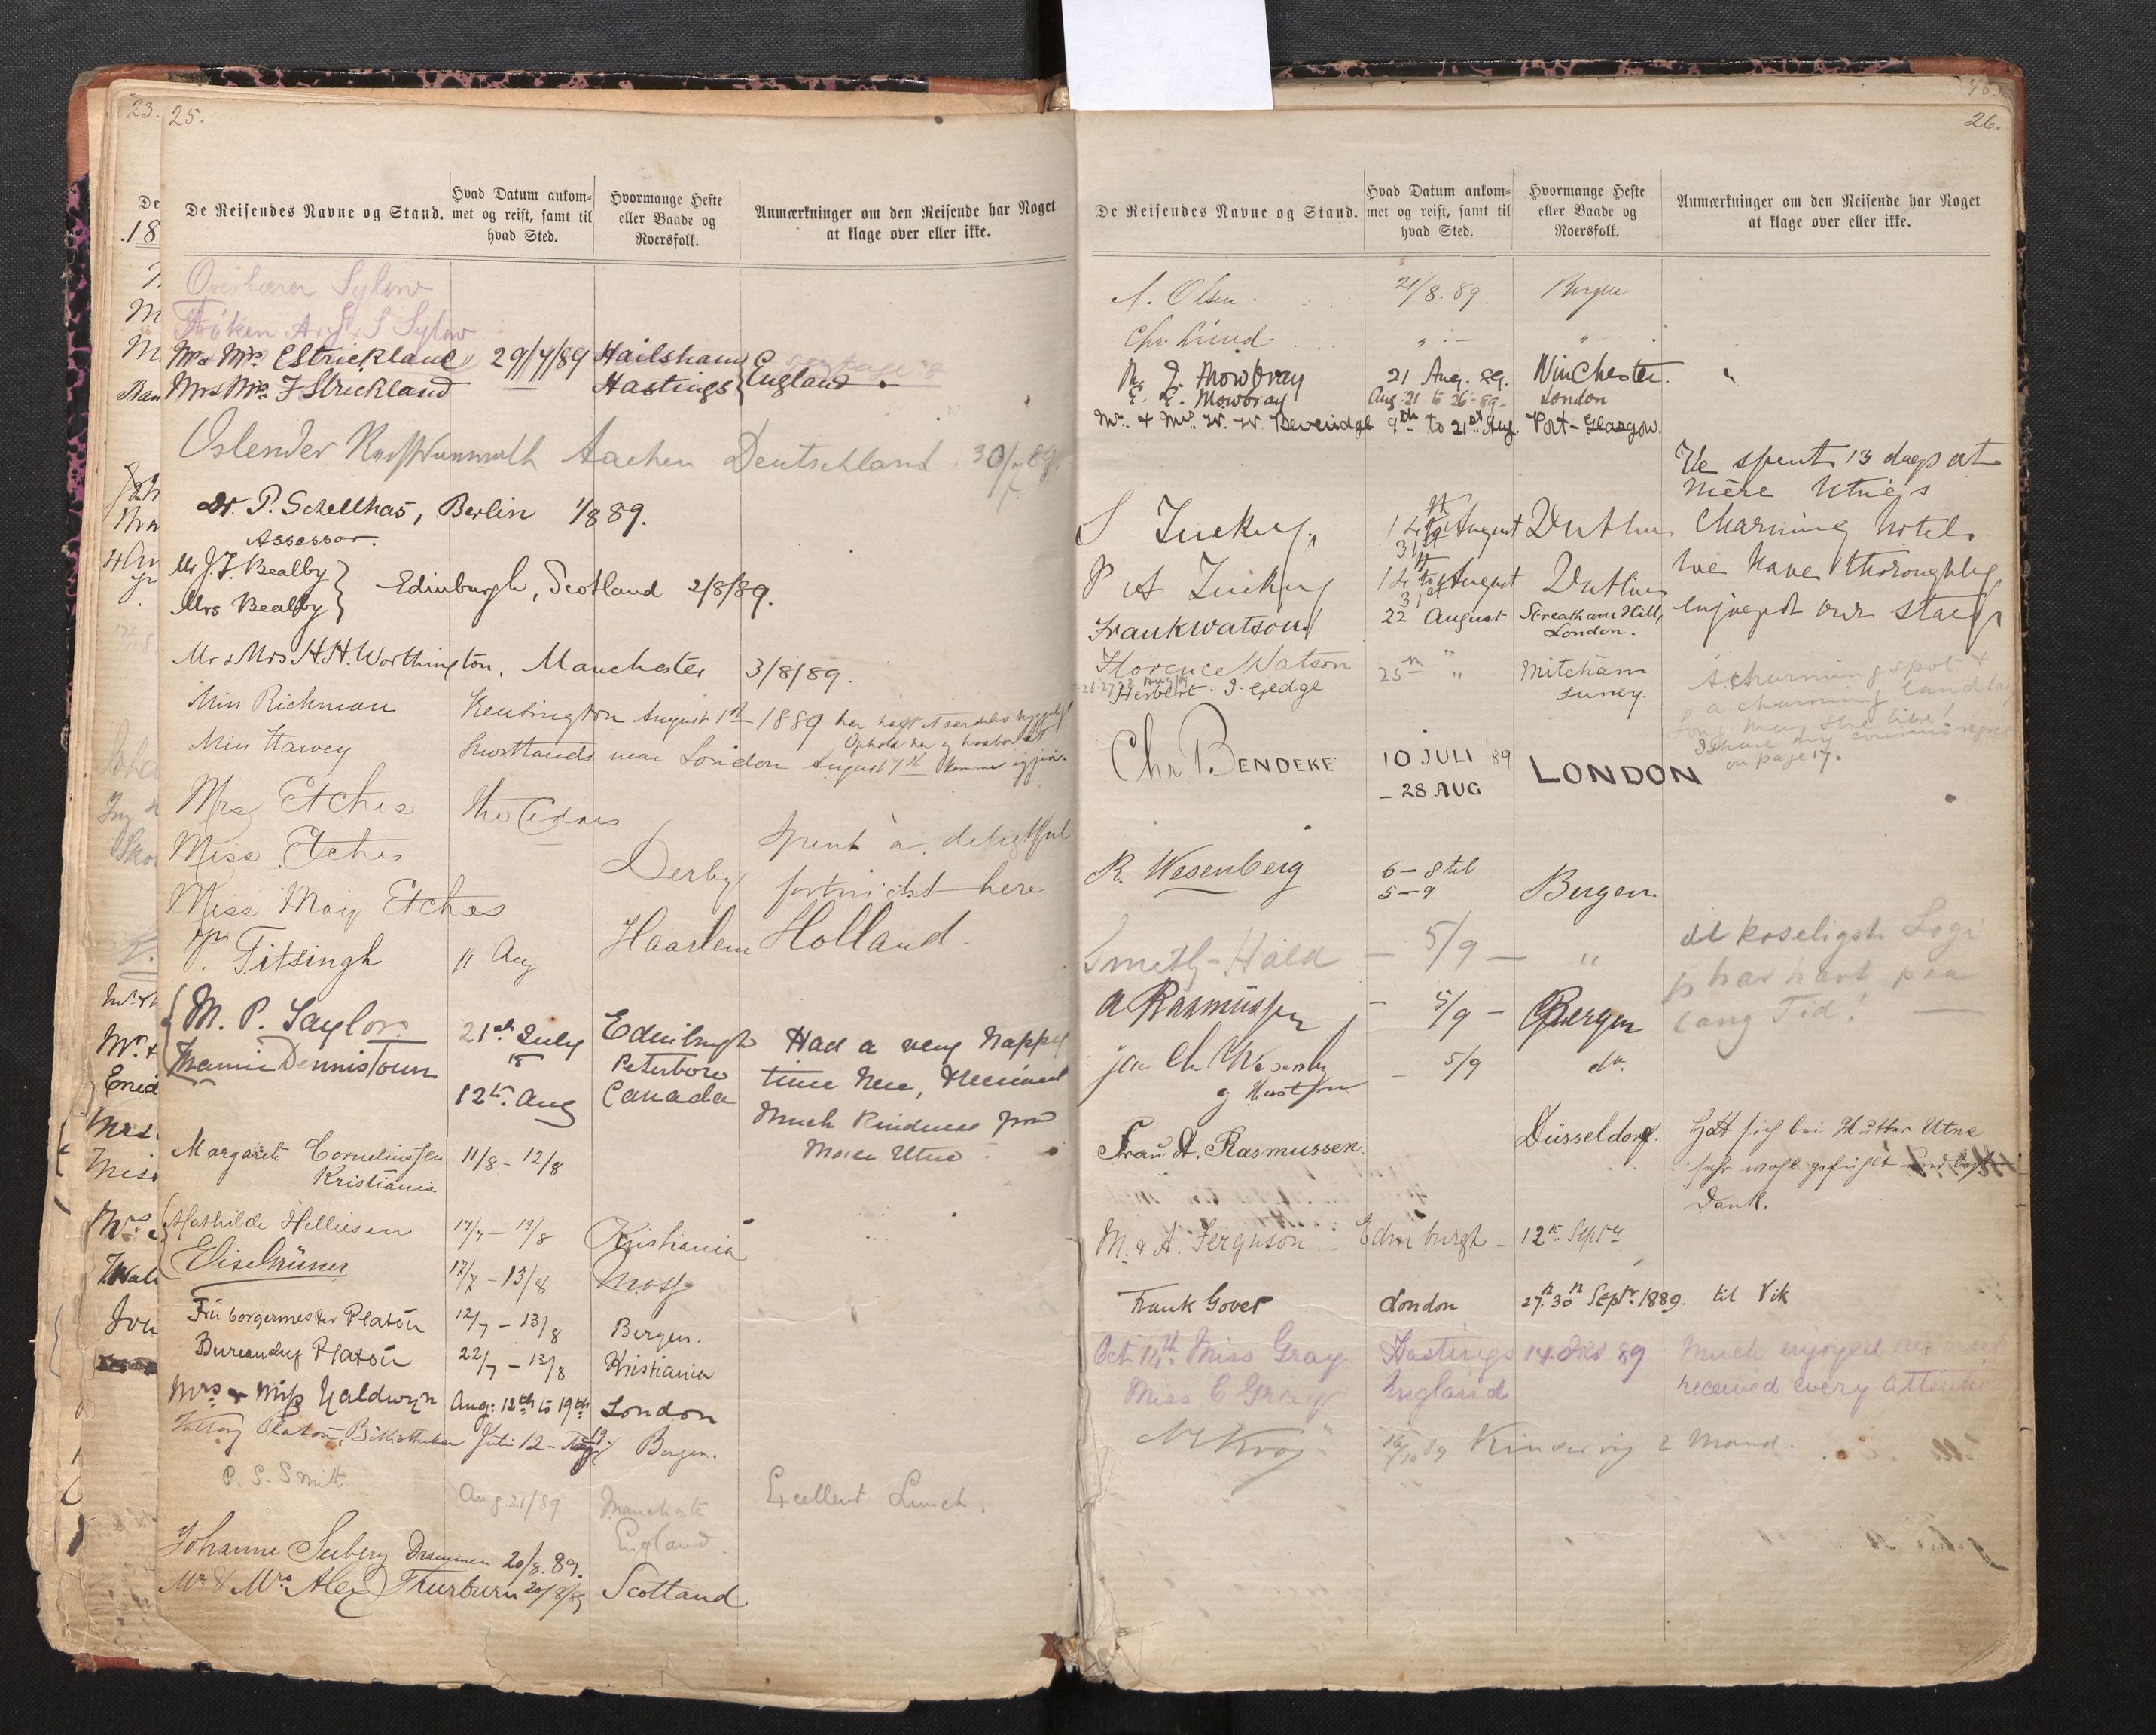 23.
25.
De Reisendes Navne og Stand.
Hvad Datum ankom-
met og reist, samt til
hvad Sted.
Hvormange Heste
eller Baade og
Roersfolk.
Anmærkninger om den Reisende har Noget
at klage over eller ikke.
Overlærer Sylow
Frøken A. S Sylow
Mr & Mrs E Strickland 29/7/89 Hailsham
Mr & Mrs F Strickland — Hastings } England.
Aachen Deutschland. 30/7 89.
Dr. P. Schellhas, Berlin 1/8 89.
Assessor.
Mr J. F. Bealby
Mrs Bealby } Edinburgh, Scotland 2/8/89.
Mr & Mrs H. H. Worthington, Manchester 3/8/89.
Miss Richman Kensington August 1st 1889 har havt et særdeles hyggeligt
Ophold her og haaber at
Miss Harvey Shortlands near London August 7th komme igjen.
Mrs Etches The Cedars
Miss Etches Derby Spent a delightful
Miss May Etches fortnight here
Titsingh 11 Aug Haarlem Holland.
M. P. Taylor 21st July Edinburgh Had a very happy
Mamie Dennistoun to Peterboro time here, & received
12th Aug Canada Much kindness from
Moer Utne.
Margarete Corneliussen 11/8 - 12/8
Kristiania
Mathilde Helliesen 17/7 - 13/8 Kristiania
Elise Grüner 17/7 - 13/8 Moss
Fru borgermester Platou 12/7 - 13/8 Bergen.
Bureauchef Platou 22/7 - 13/8 Kristiania
Mrs & Miss Yaldwyn Aug: 12th to 19th London
Platou, Juli 12 - Aug 19. Bergen.
P. S. Smith Aug 21/89 Manchester Excellent Lunch.
England.
Johanne Seeberg Drammen 20/8. 89.
Mr & Mrs Alex Thurburn 20/8/89 Scotland
26.
De Reisendes Navne og Stand.
Hvad Datum ankom-
met og reist, samt til
hvad Sted.
Hvormange Heste
eller Baade og
Roersfolk.
Anmærkninger om den Reisende har Noget
at klage over eller ikke.
A. Olsen. 21/8. 89. Bergen
Chr. Lund. " — "
Mowbray 21 Aug. 89. Winchester.
E. E. Mowbray Aug. 21 to 26 - 89 - London
Mr. & Mrs. W. W. Beveridge 9th to 21st Aug. Port-Glasgow.
We spent 13 days at
Mère Utne's
S Tuckey. 14th to August charming hotel
31st
P A Tuckey 14th to August we have thoroughly
31st
Frank Watson 22 August Streatham Hill, enjoyed our stay
London.
Florence Watson 25th " Mitcham A charming spot &
Herbert I. Gedge " Surrey. a charming landlady
Long may she live!
I share my cousin's regret
on page 17.
Chr. BENDEKE 10 JULI '89 LONDON
- 28 AUG
R. Wesenberg 6 - 8 til
5 - 9 Bergen
Smith-Hald — 5/9 — " det koseligste Logi
A Rasmussen — 5/9 — Bergen jeg har havt paa
lang Tid! —
Chr Wesenberg — 5/9 do.
og Hustru
Frau A. Rasmussen. Düsseldorf. Hat sich bei Mutter Utne
sehr wohl gefühlt
Dank.
M. & A. Ferguson - Edinburgh - 12th Septr
Frank Gover London 27th. 30th Septr. 1889. til Vik
Oct 14th. Miss Gray Hastings 14 Oct 89 Much enjoyed
Miss C Gray England received every
Krog 16/10 89 Kinservig 2 Mand.